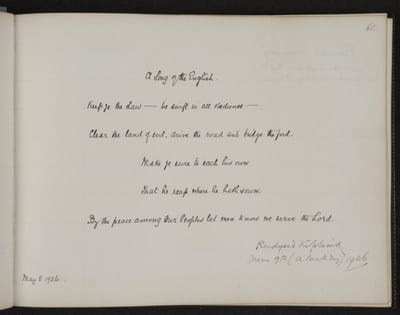 A Song of the English.
Keep ye the Law — be swift in all obedience —
Clear the land of evil, drive the road and bridge the ford.
Make ye sure to each his own
That he reap where he hath sown.
By the peace among Our Peoples let men know we serve the Lord.
Rudyard Kipling
June 9th ( ) 1926
May 8 1926.